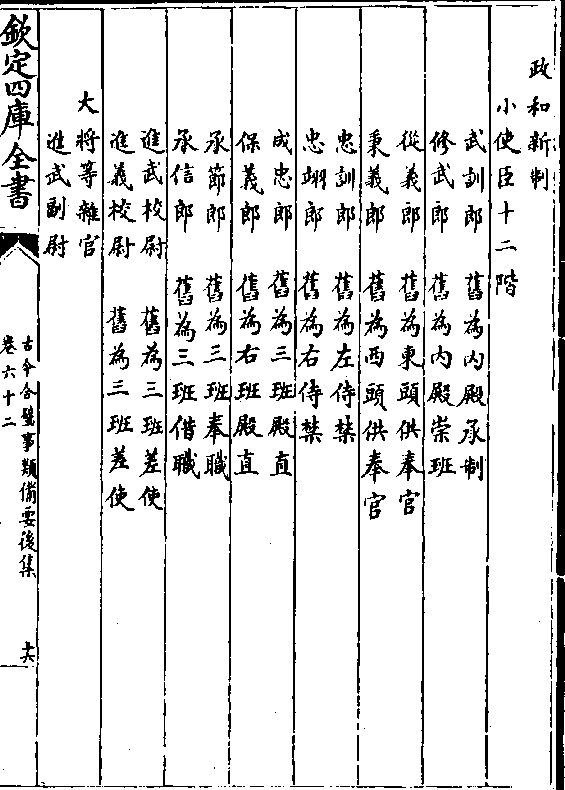 政和新制
小使臣十二階
武訓郎　舊為內殿承制
修武郎　舊為內殿崇班
從義郎　舊為東頭供奉官
秉義郎　舊為西頭供奉官
忠訓郎　舊為左侍禁
忠翊郎　舊為右侍禁
成忠郎　舊為三班殿直
保義郎　舊為右班殿直
承節郎　舊為三班奉職
承信郎　舊為三班借職
進武校尉　舊為三班差使
進義校尉　舊為三班差使
大將等雜官
進武副尉
欽定四庫全書
古今合璧事類備要後集
卷六十二
十六